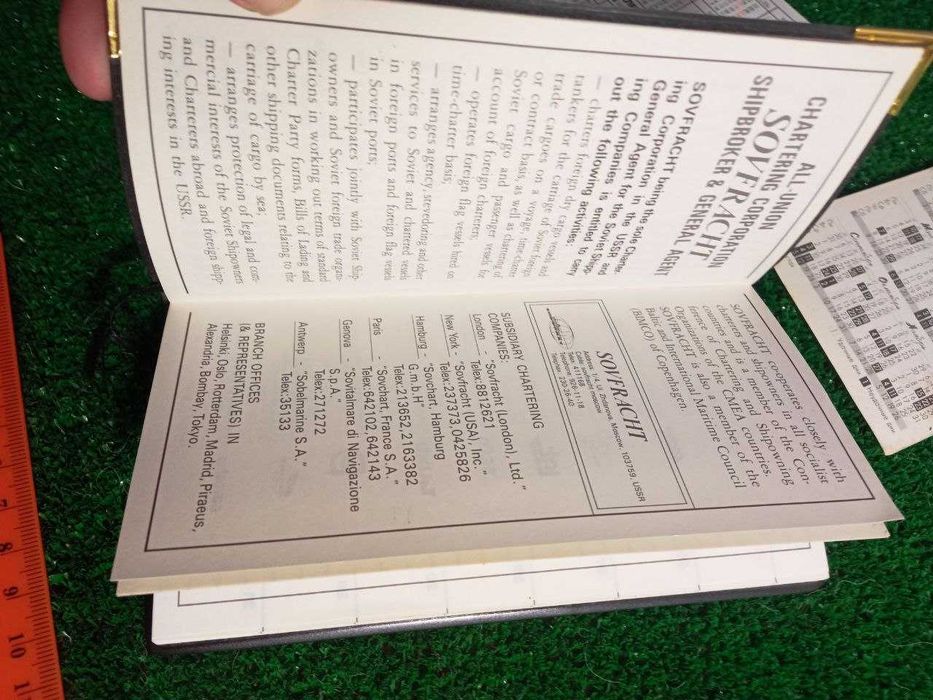 ALL-UNION
CHARTERING CORPORATION
SOVFRACHT
SHIPBROKER & GENERAL AGENT
SOVFRACHT being the sole Charter-
ing Corporation in the USSR and
General Agent for the Soviet Shipp-
ing Companies is entitled to carry
out the following activities:
— charters foreign dry cargo vessels and
tankers for the carriage of Soviet foreign
trade cargoes on a voyage, time-charter
or contract basis, as well as chartering of
Soviet cargo and passenger vessels for
account of foreign charterers;
— operates foreign flag vessels hired on
time-charter basis;
— arranges agency, stevedoring and other
services to Soviet and chartered vessels
in foreign ports and foreign flag vessels
in Soviet ports;
— participates jointly with Soviet Ship-
owners and Soviet foreign trade organi-
zations in working out terms of standard
Charter Party forms, Bills of Lading and
other shipping documents relating to the
carriage of cargo by sea;
— arranges protection of legal and com-
mercial interests of the Soviet Shipowners
and Charterers abroad and foreign shipp-
ing interests in the USSR.
SOVFRACHT cooperates closely with
charterers and shipowners in all socialist
countries and is a member of the Con-
ference of Chartering and Shipowning
Organizations of the CMEA countries.
SOVFRACHT is also a member of the
Baltic and International Maritime Council
(BIMCO) in Copenhagen.
SOVFRACHT
Moscow 103759, USSR
SUBSIDIARY CHARTERING
COMPANIES:
London - "Sovfracht (London), Ltd."
Telex: 8812621
New York - "Sovfracht (USA), Inc."
Telex: 237373, 0425826
Hamburg - "Sovchart, Hamburg
G.m.b.H"
Telex: 213652, 2163382
Paris - "Sovchart, France S.A."
Telex: 642102, 642143
Genova - "Sovitalmare di Navigazione
S.p.A."
Telex: 271272
Antwerp - "Sobelmarine S.A."
Telex: 35133
BRANCH OFFICES
(& REPRESENTATIVES) IN
Helsinki, Oslo, Rotterdam, Madrid, Piraeus,
Alexandria, Bombay, Tokyo.
7
8
9
10